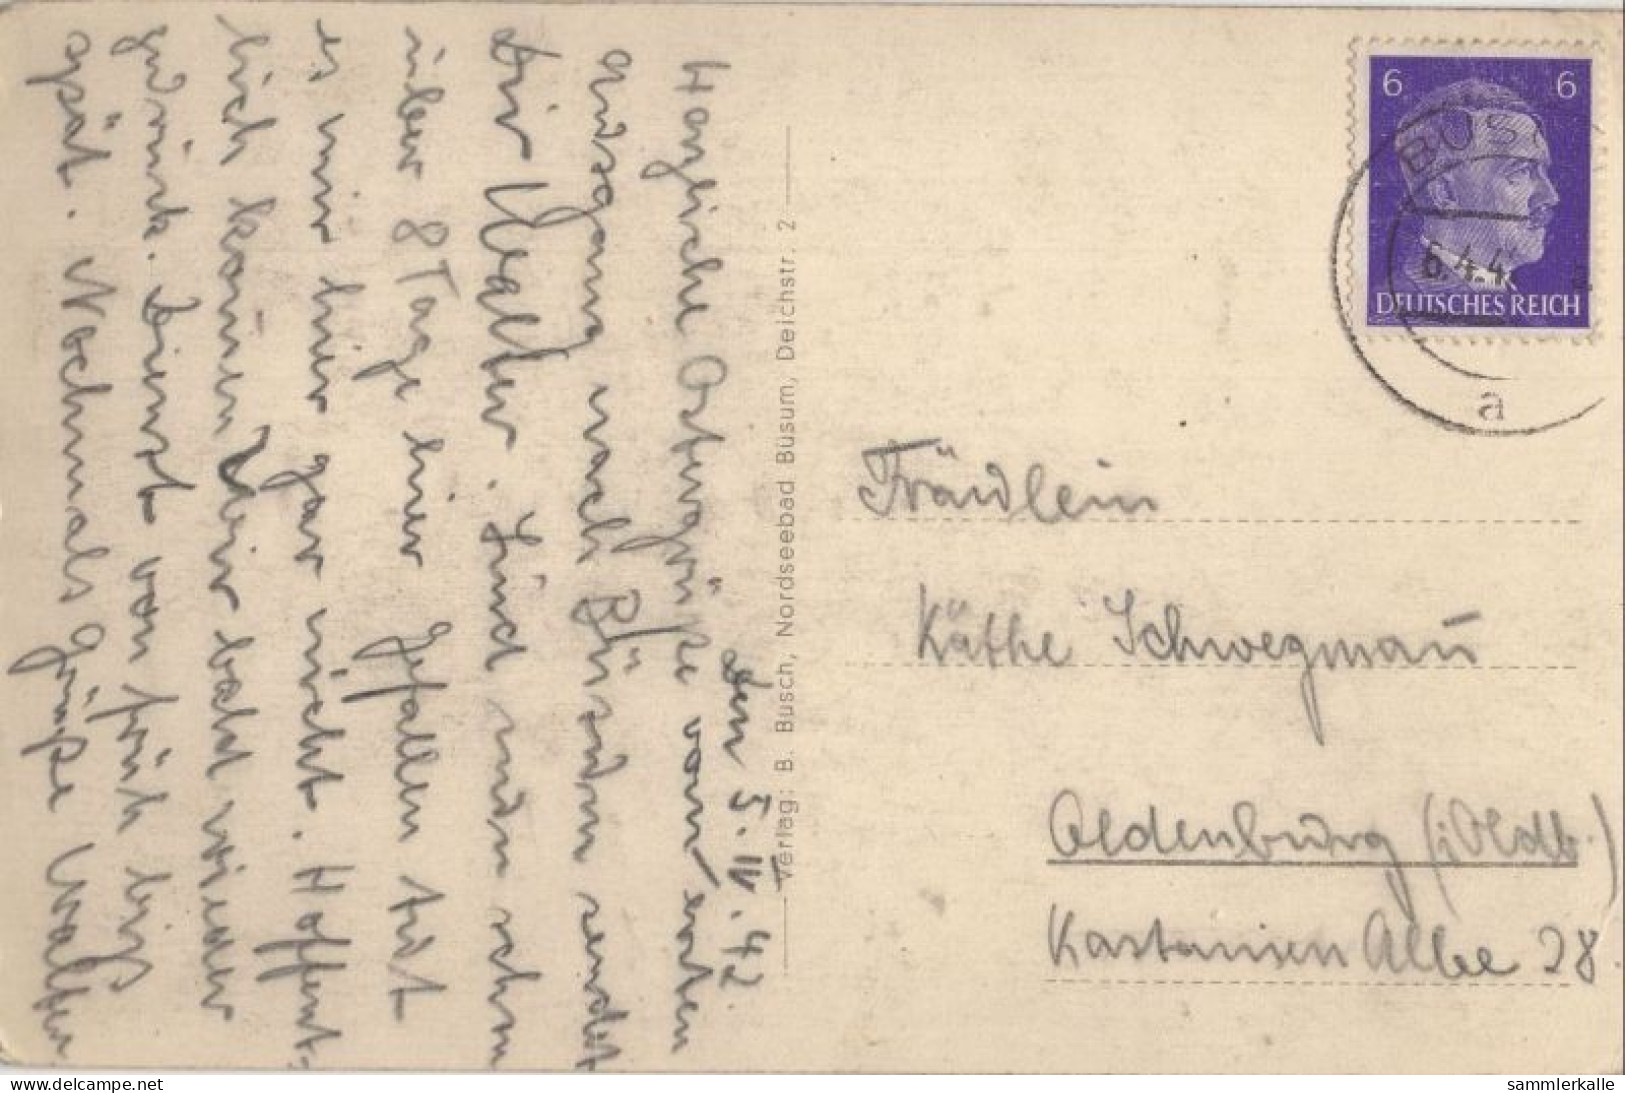 den 5. IV. 42.
Herzliche Ostergrüße vom ersten
ausgang nach Büsum sendet
Dir Walter. Sind nun schon
über 8 Tage hier gefallen tut
es mir hier gar nicht. Hoffent-
lich kommen wir bald wieder
zurück. Dienst von früh biß
spät. Nochmals Grüße Walter
Verlag: B. Busch, Nordseebad Büsum, Deichstr. 2
6 6
DEUTSCHES REICH
BÜSU
6.4.4
a
Fräulein
Käthe Schwegmann
Oldenburg (i/Oldb.)
Kastanien Allee 28.
© by ansichtskarten-center.de
sammlerkalle